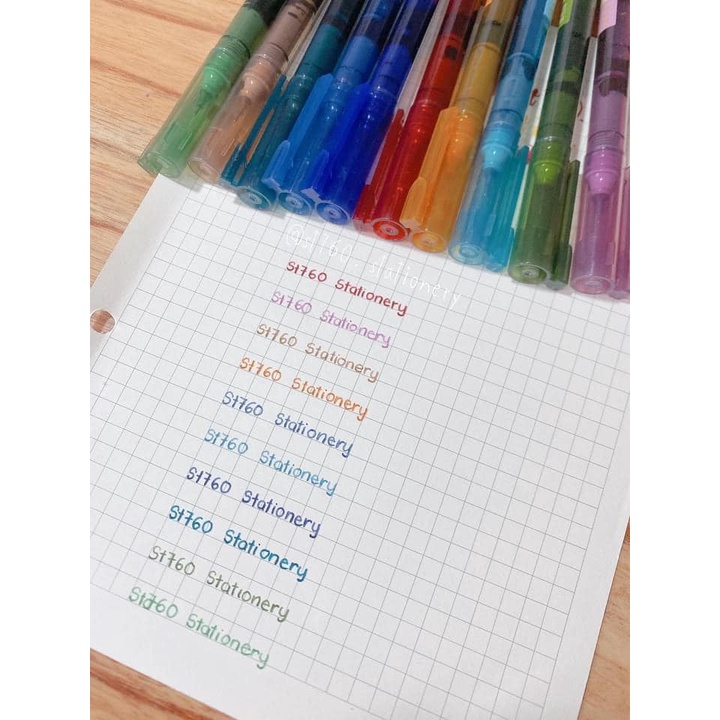 @st760.stationery
St760 Stationery
St760 Stationery
St760 Stationery
St760 Stationery
St760 Stationery
St760 Stationery
St760 Stationery
St760 Stationery
St760 Stationery
St760 Stationery